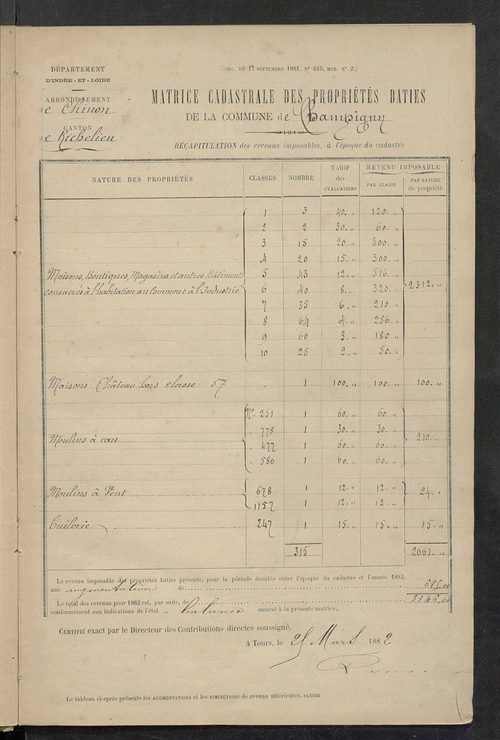 DÉPARTEMENT
D'INDRE-ET-LOIRE
ARRONDISSEMENT
de Chinon
CANTON
de Richelieu
(CIRC. DU 17 SEPTEMBRE 1881, N° 618, MOD. N° 2.)
MATRICE CADASTRALE DES PROPRIÉTÉS BATIES
DE LA COMMUNE de Champigny
RÉCAPITULATION des revenus imposables, à l'époque du cadastre
NATURE DES PROPRIÉTÉS CLASSES NOMBRE TARIF des ÉVALUATIONS REVENU IMPOSABLE PAR CLASSE PAR NATURE de propriété
1 3 40. " 120. "
2 2 30. " 60. "
3 15 20 " 300. "
4 20 15. " 300. "
Maisons, Boutiques, Magasins et autres Bâtiments 5 43 12. " 516 "
consacrés à l'habitation au Commerce à l'Industrie 6 40 8. " 320. " 2312. "
7 35 6. " 210. "
8 64 4. " 256. "
9 60 3. " 180 "
10 25 2. " 50. "
Maisons Château hors classe 57 1 100. " 100. " 100. "
N° 251 1 60. " 60. "
778 1 30. " 30. "
Moulins à eau 477 1 60. " 60. " 210. "
586 1 60. " 60. "
Moulins à Vent 678 1 12. " 12. " 24. "
1157 1 12. " 12. "
Tuilerie 247 1 15. " 15. " 15. "
315 2661. "
Le revenu imposable des propriétés bâties présente, pour la période écoulée entre l'époque du cadastre et l'année 1882,
une augmentation de
Le total des revenus pour 1882 est, par suite, de
conformément aux indications de l'état annexé à la présente matrice.
CERTIFIÉ exact par le Directeur des Contributions directes soussigné.
A TOURS, le 25 Mars 1882
Le tableau ci-après présente les AUGMENTATIONS et les DIMINUTIONS de revenu ultérieures, SAVOIR :